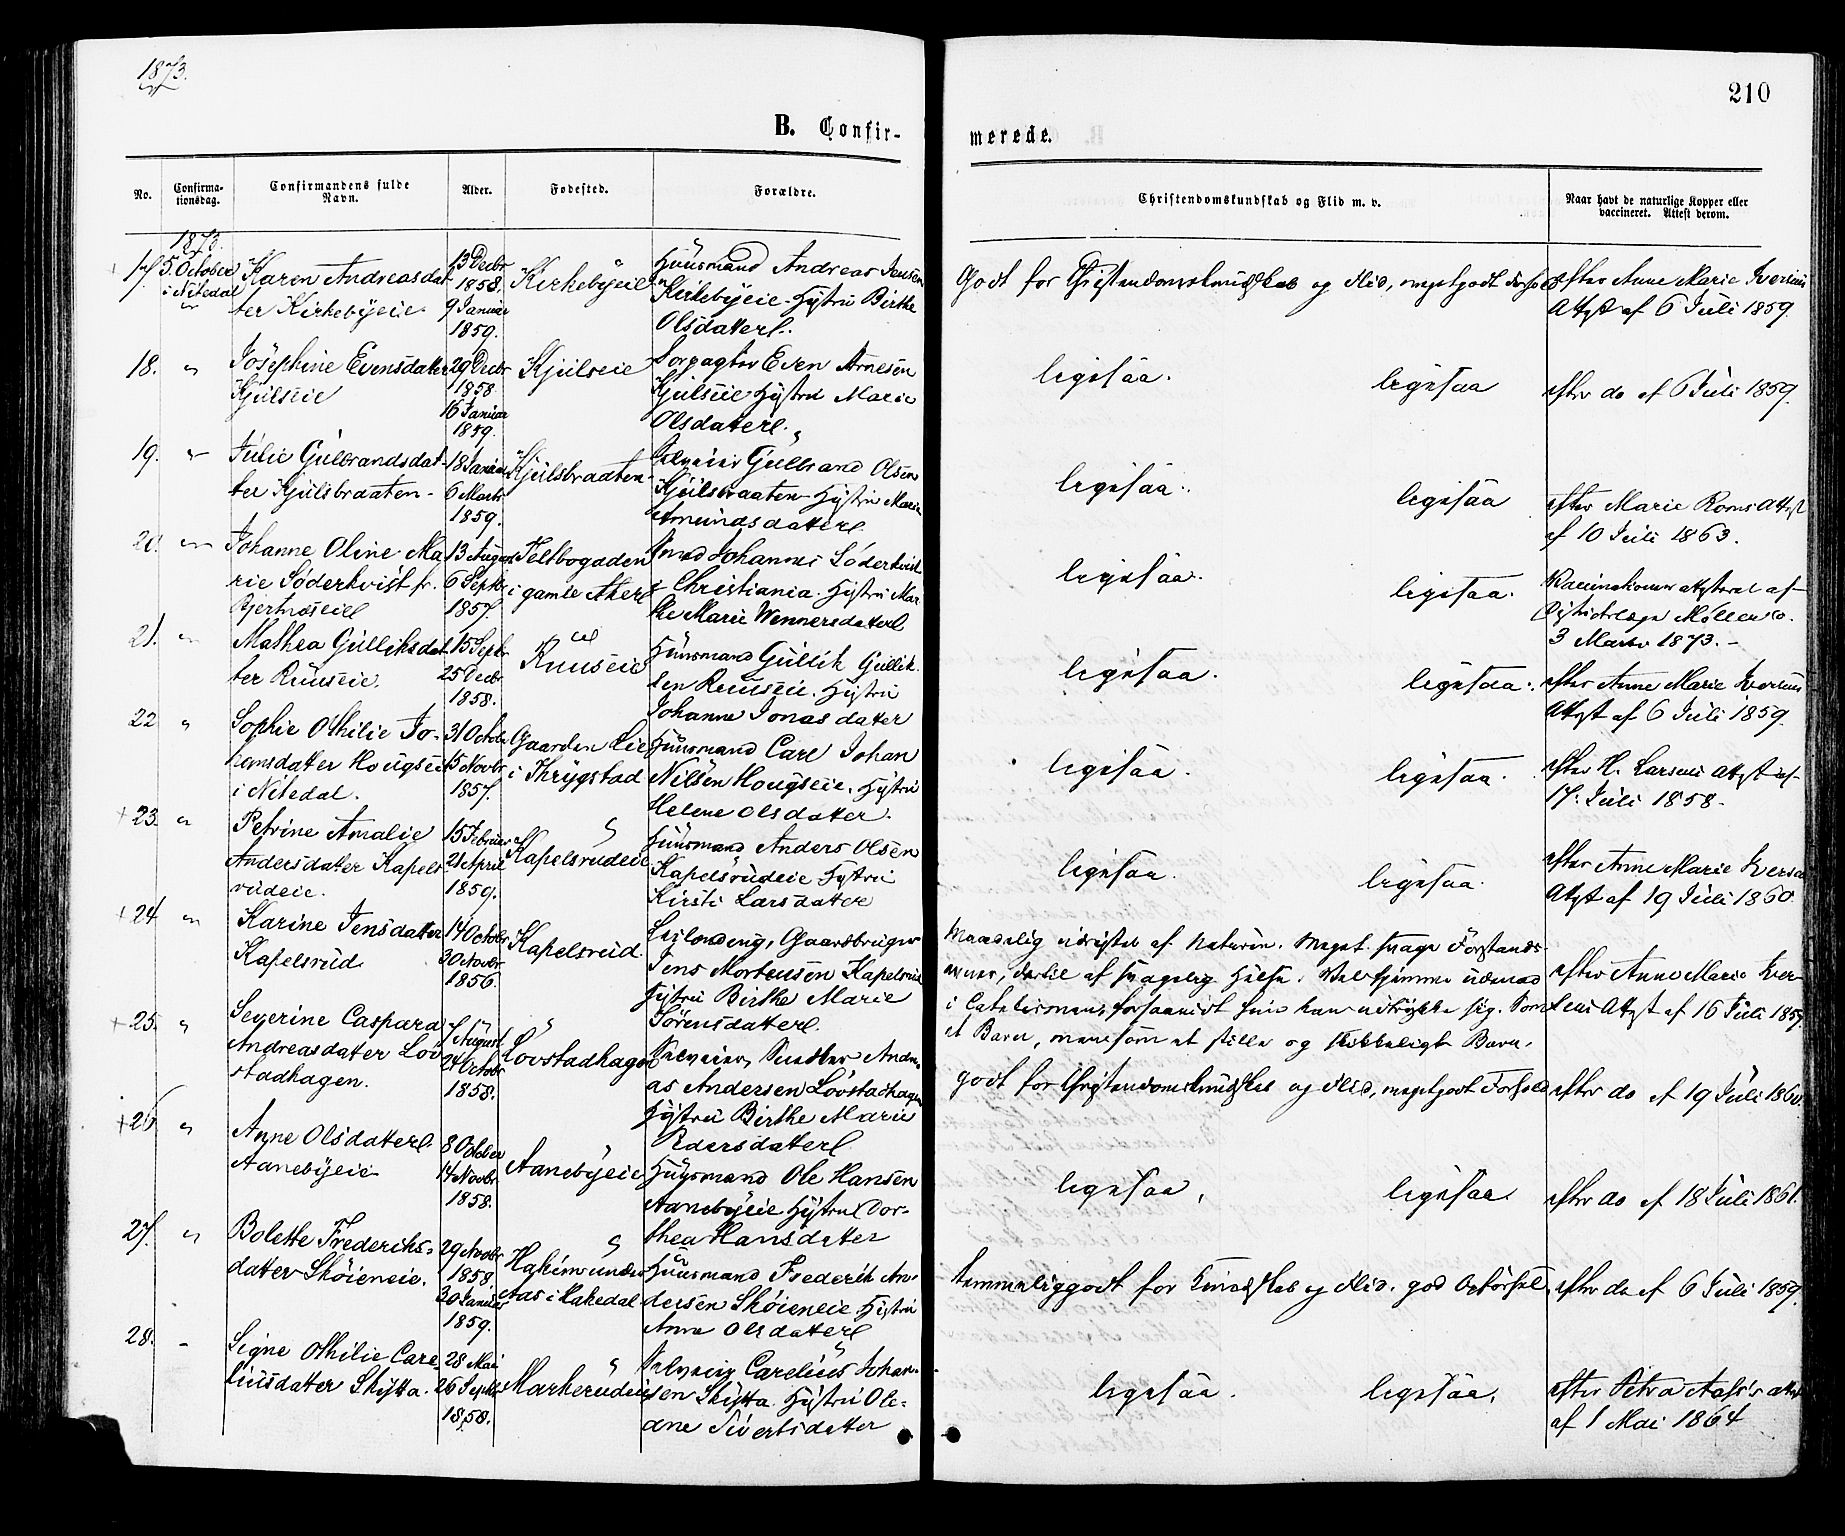 1873.
210
B. Confir-
merede.
No.
Confirma-
tionsdag.
Confirmandens fulde
Navn.
Alder.
Fødested.
Forældre.
Christendomskundskab og Flid m. v.
Naar havt de naturlige Kopper eller
vaccineret. Attest derom.
1873.
17. 5. October
i Nitedal
Karen Andreasdat-
ter Kirkebyeie
13 Decbr
1858.
9 Januar
1859.
Kirkebyeie
Huusmand Andreas Jensen
Kirkebyeie. Hustru Birthe
Olsdatter.
Godt for Christendomskundskab og Flid, megetgodt Forhold
efter Anne Marie Iversens
Attest af 6 Juli 1859.
18. "
Josephine Evensdatter
Kjulseie
29 Decbr
1858.
16 Januar
1859.
Kjulseie
Forpagter Even Arnesen
Kjulseie Hustru Marie
Olsdatter.
ligesaa.
ligesaa
efter do af 6 Juli 1859.
19. "
Julie Gulbrandsdat-
ter Kjulsbraaten.
18 Januar
6 Marts
1859.
Kjulsbraaten
Selveier Gulbrand Olsen
Kjulsbraaten. Hustru Marie
Amundsdatter
ligesaa.
ligesaa
efter Marie Roms Attest
af 10 Juli 1863.
20. "
Johanne Oline Ma-
rie Søderkvist fr.
Bjertnæseie
13 August
6 Septbr
1857.
Teltbogaden
i gamle Aker
Smed Johannes Søderkvist
i Christiania. Hustru Mar-
the Marie Wennersdatter
ligesaa.
ligesaa.
Vaccinationen attesteret af
Districtslæge Møller
3 Marts 1873.
21. "
Mathea Gulliksdat-
ter Ruuseie.
15 Septbr
25 Decbr
1858.
Ruuseie
Huusmand Gullik Gullik-
sen Ruuseie. Hustru
Johanne Jonasdatter
ligesaa.
ligesaa.
efter Anne Marie Iversens
Attest af 6 Juli 1859.
22 "
Sophie Othilie Jo-
hansdatter Hougseie
i Nitedal.
31 Octobr
15 Novbr
1857.
Gaarden Lie
i Thrygstad
Huusmand Carl Johan
Nilsen Hougseie. Hustru
Helene Olsdatter.
ligesaa.
ligesaa.
efter H. Larsens Attest af
17. Juli 1858.
+ 23. "
Petrine Amalie
Andersdatter Kapels-
rudeie.
15 Februar
21 April
1859.
Kapelsrudeie
Huusmand Anders Olsen
Kapelsrudeie Hustru
Kirsti Larsdatter
ligesaa.
ligesaa.
efter Anne Marie Iversens
Attest af 19 Juli 1860.
+ 24. "
Karine Jensdatter
Kapelsrud
14 Octobr
30 Novbr
1856.
Kapelsrud.
Leilænding, Gaardbruger
Jens Mortensen Kapelsrud
Hustru Birthe Marie
Sørensdatter.
Maadelig udrustet af Naturen. Meget svage Forstands-
evner, dertil af svagelig Helse. Vel hjemme udenad
i Catechismen, forsaavidt hun kan udtrykke sig. Som
et Barn, men som et stille og skikkeligt Barn.
efter Anne Marie Iver-
sens Attest af 16 Juli 1857.
+ 25. "
Severine Caspara
Andreasdatter Løv-
stadhagen.
7 August
24 Octobr
1858.
Løvstadhagen
Selveier, Snedker Andre-
as Andersen Løvstadhagen
Hustru Birthe Marie
Pedersdatter
godt for Christendomskundskab og Flid, megetgodt Forhold
efter do af 19 Juli 1860.
+ 26 "
Anne Olsdatter
Aanebyeie
8 October
14 Novbr
1858.
Aanebyeie
Huusmand Ole Hansen
Aanebyeie Hustru Dor-
thea Hansdatter
ligesaa.
ligesaa
efter do af 18 Juli 1861.
27. "
Bolette Frederiks-
datter Skøieneie.
29 Novbr
1858.
30 Januar
1859.
Hakim under
Aas i Hakedal
Huusmand Frederik An-
dersen Skøieneie Hustru
Anne Olsdatter
Temmeliggodt for Kundskab og Flid. god Opførsel.
efter do af 6 Juli 1859.
28. "
Signe Othilie Care-
liusdatter Skytta.
28 Mai
26 Septbr
1858.
Markerudeie
Selveier Carelius Johan-
sen Skytta. Hustru Ole-
ane Sivertsdatter
ligesaa.
ligesaa.
efter Petra Aas's Attest
af 1 Mai 1864